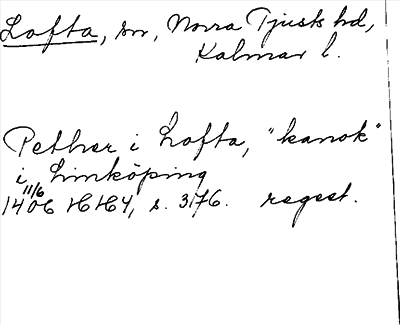 Lofta, sn, Norra Tjusts hd,
Kalmar l.
Pether i Lofta, "kanok"
i Linköping
11/6
1406 HH4, s. 3176. regest.